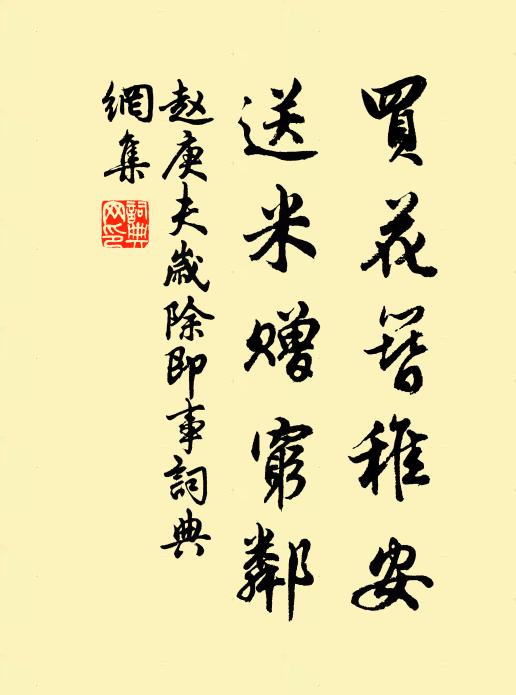 買花簪稚安
送米贈窮鄰
赵庚夫歲除即事詞典
網集
詞典
网印